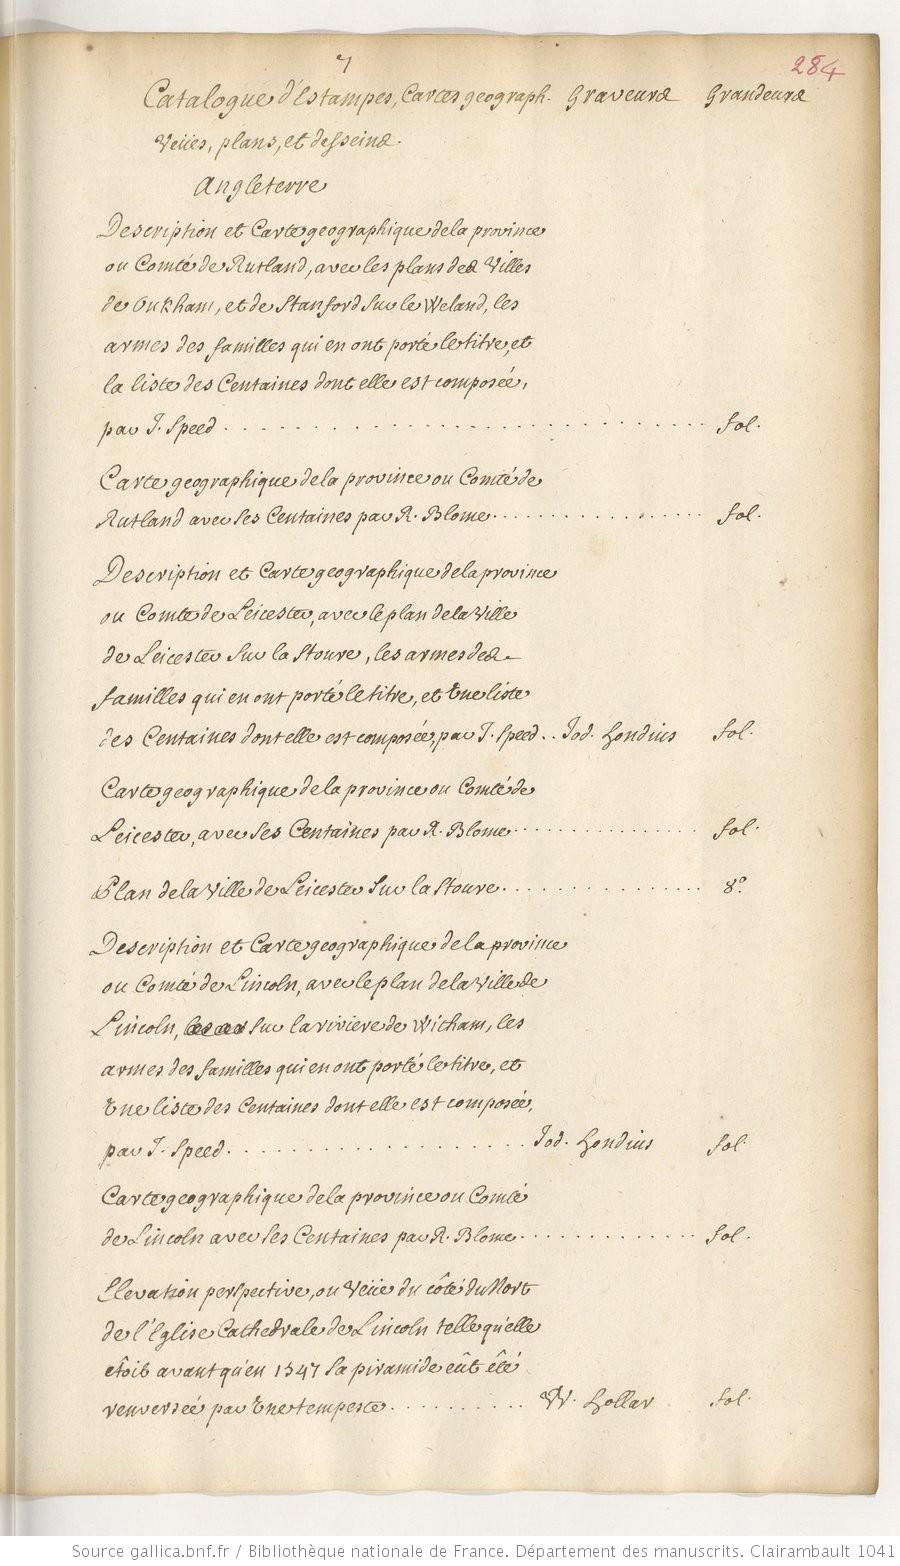 7
284
Catalogue d'Estampes, Cartes geograph. Graveurs Grandeurs
Veües, plans, et desseins.
Angleterre
Description et Carte geographique de la province
ou Comté de Rutland, avec les plans des Villes
de Oukham, et de Stanford sur le Weland, les
armes des familles qui en ont porté le titre, et
la liste des Centaines dont elle est composée,
par J. Speed . . . . . . . . . . . . . . . . . . . . . . . . . . . . . . fol.
Carte geographique de la province ou Comté de
Rutland avec ses Centaines par R. Blome . . . . . . . . . . . . . . . fol.
Description et Carte geographique de la province
ou Comté de Leicester, avec le plan de la Ville
de Leicester sur la Stoure, les armes des
familles qui en ont porté le titre, et Une liste
des Centaines dont elle est composée, par J. Speed . . Jod. Hondius fol.
Carte geographique de la province ou Comté de
Leicester, avec ses Centaines par R. Blome . . . . . . . . . . . . . . fol.
Plan de la Ville de Leicester sur la Stoure . . . . . . . . . . . . . . . 8.°
Description et Carte geographique de la province
ou Comté de Lincoln, avec le plan de la Ville de
Lincoln, sur la riviere de Witham, les
armes des familles qui en ont porté le titre, et
Une liste des Centaines dont elle est composée,
par J. Speed . . . . . . . . . . . . . . . . . . Jod. Hondius fol.
Carte geographique de la province ou Comté
de Lincoln avec ses Centaines par R. Blome . . . . . . . . . . . . . fol.
Elevation perspective, ou Veüe du côté du Nort
de l'Eglise Cathedrale de Lincoln telle qu'elle
etoit avant qu'en 1547 sa piramide eût êté
renversée par Une tempeste . . . . . . . . . . W. Hollar fol.
Source gallica.bnf.fr / Bibliothèque nationale de France. Département des manuscrits. Clairambault 1041